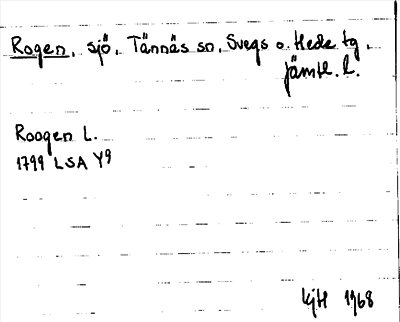 Rogen, sjö, Tännäs sn, Svegs o. Hede tg,
Jämtl. l.
Roogen L.
1799 LSA Y9
KjH 1968